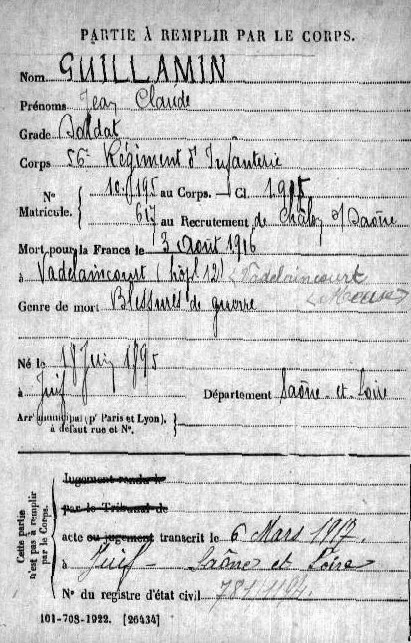 PARTIE À REMPLIR PAR LE CORPS.
Nom GUILLAMIN
Prénoms Jean Claude
Grade Soldat
Corps 56e Régiment d'Infanterie
N° Matricule. { 10.195 au Corps. — Cl. 1915
617 au Recrutement de Châlon s/ Saône
Mort pour la France le 3 Août 1916
à Vadelaincourt (hôpl 12) (Vadelaincourt
Meuse)
Genre de mort Blessures de guerre
Né le 18 Juin 1895
à Juif Département Saône-et-Loire
Arr' municipal (p' Paris et Lyon),
à défaut rue et N°. }
Cette partie n'est pas à remplir par le Corps.
Jugement rendu le
par le Tribunal de
acte ou jugement transcrit le 6 Mars 1917.
à Juif - Saône et Loire
N° du registre d'état civil
101-708-1922. [26434]